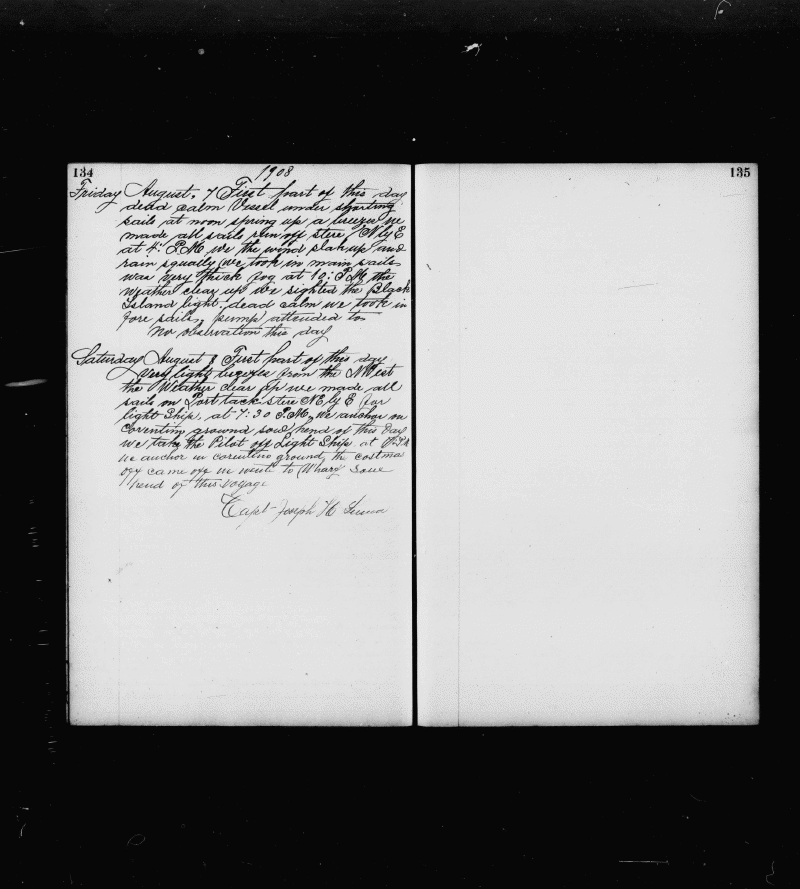 134
1908
Friday August. 7 First part of this day
dead calm Vessel under shorting
sails at noon spring up a breeze we
made all sails run off stree N by E
at 4: P.M. we the wind slak up and
rain squally we took in main sails
was very thick fog at 10: P.M. the
weather clear up we sighted the Block
Island light. dead calm we took in
fore sails, pump attended to
No observation this day
Saturday August 8 First part of this day
Very light breeze from the NWest
the Weather clear up we made all
sails on Port tack stree NE by E for
light Ship, at 7:30 P.M. we anchor in
corentine ground soue hend of this day
we take the Pilot off Light Ship at
we anchor in corentine ground, the costma
ofy came ofe we went to Wharf soue
hend of this voyage
Capt Joseph H
135